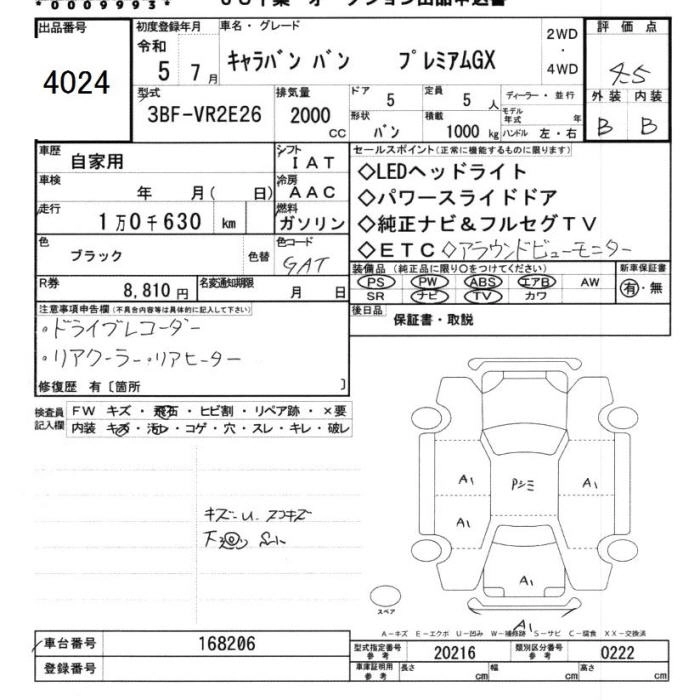 *0009993*
出品番号
4024
初度登録年月
令和
5 7月
車名・グレード
キャラバン バン プレミアムGX
2WD
・
4WD
評価点
4.5
外装 内装
B B
型式
3BF-VR2E26
排気量
2000
cc
ドア
5
定員
5 人
形状
バン
積載
1000 kg
ディーラー・並行
モデル年式 年
ハンドル 左・右
車歴 自家用
シフト
IAT
車検 年 月( 日)
冷房
AAC
走行
1万0千630 km
燃料
ガソリン
色
ブラック
色替
色コード
GAT
R券
8,810円
名変通知期限
月 日
セールスポイント(正常に機能するものに限ります)
◇LEDヘッドライト
◇パワースライドドア
◇純正ナビ&フルセグTV
◇ETC ◇アラウンドビューモニター
装備品(純正品に限り○をつけてください)
PS PW ABS エアB AW
SR ナビ TV カワ
新車保証書
有・無
後日品
保証書・取説
注意事項申告欄(不具合内容等は具体的に記入して下さい)
・ドライブレコーダー
・リアクーラー・リアヒーター
修復歴 有〔箇所 〕
検査員
記入欄
FW キズ・飛石・ヒビ割・リペア跡・×要
内装 キズ・汚レ・コゲ・穴・スレ・キレ・破レ
キズ-U.
A1
A1
Pシミ
A1
A1
A1
スペア
A-キズ E-エクボ U-凹み W-補修跡 S-サビ C-腐食 XX-交換済
車台番号 168206
登録番号
型式指定番号
参考
20216
類別区分番号
参考
0222
車庫証明用
参考
長さ cm 幅 cm 高さ cm